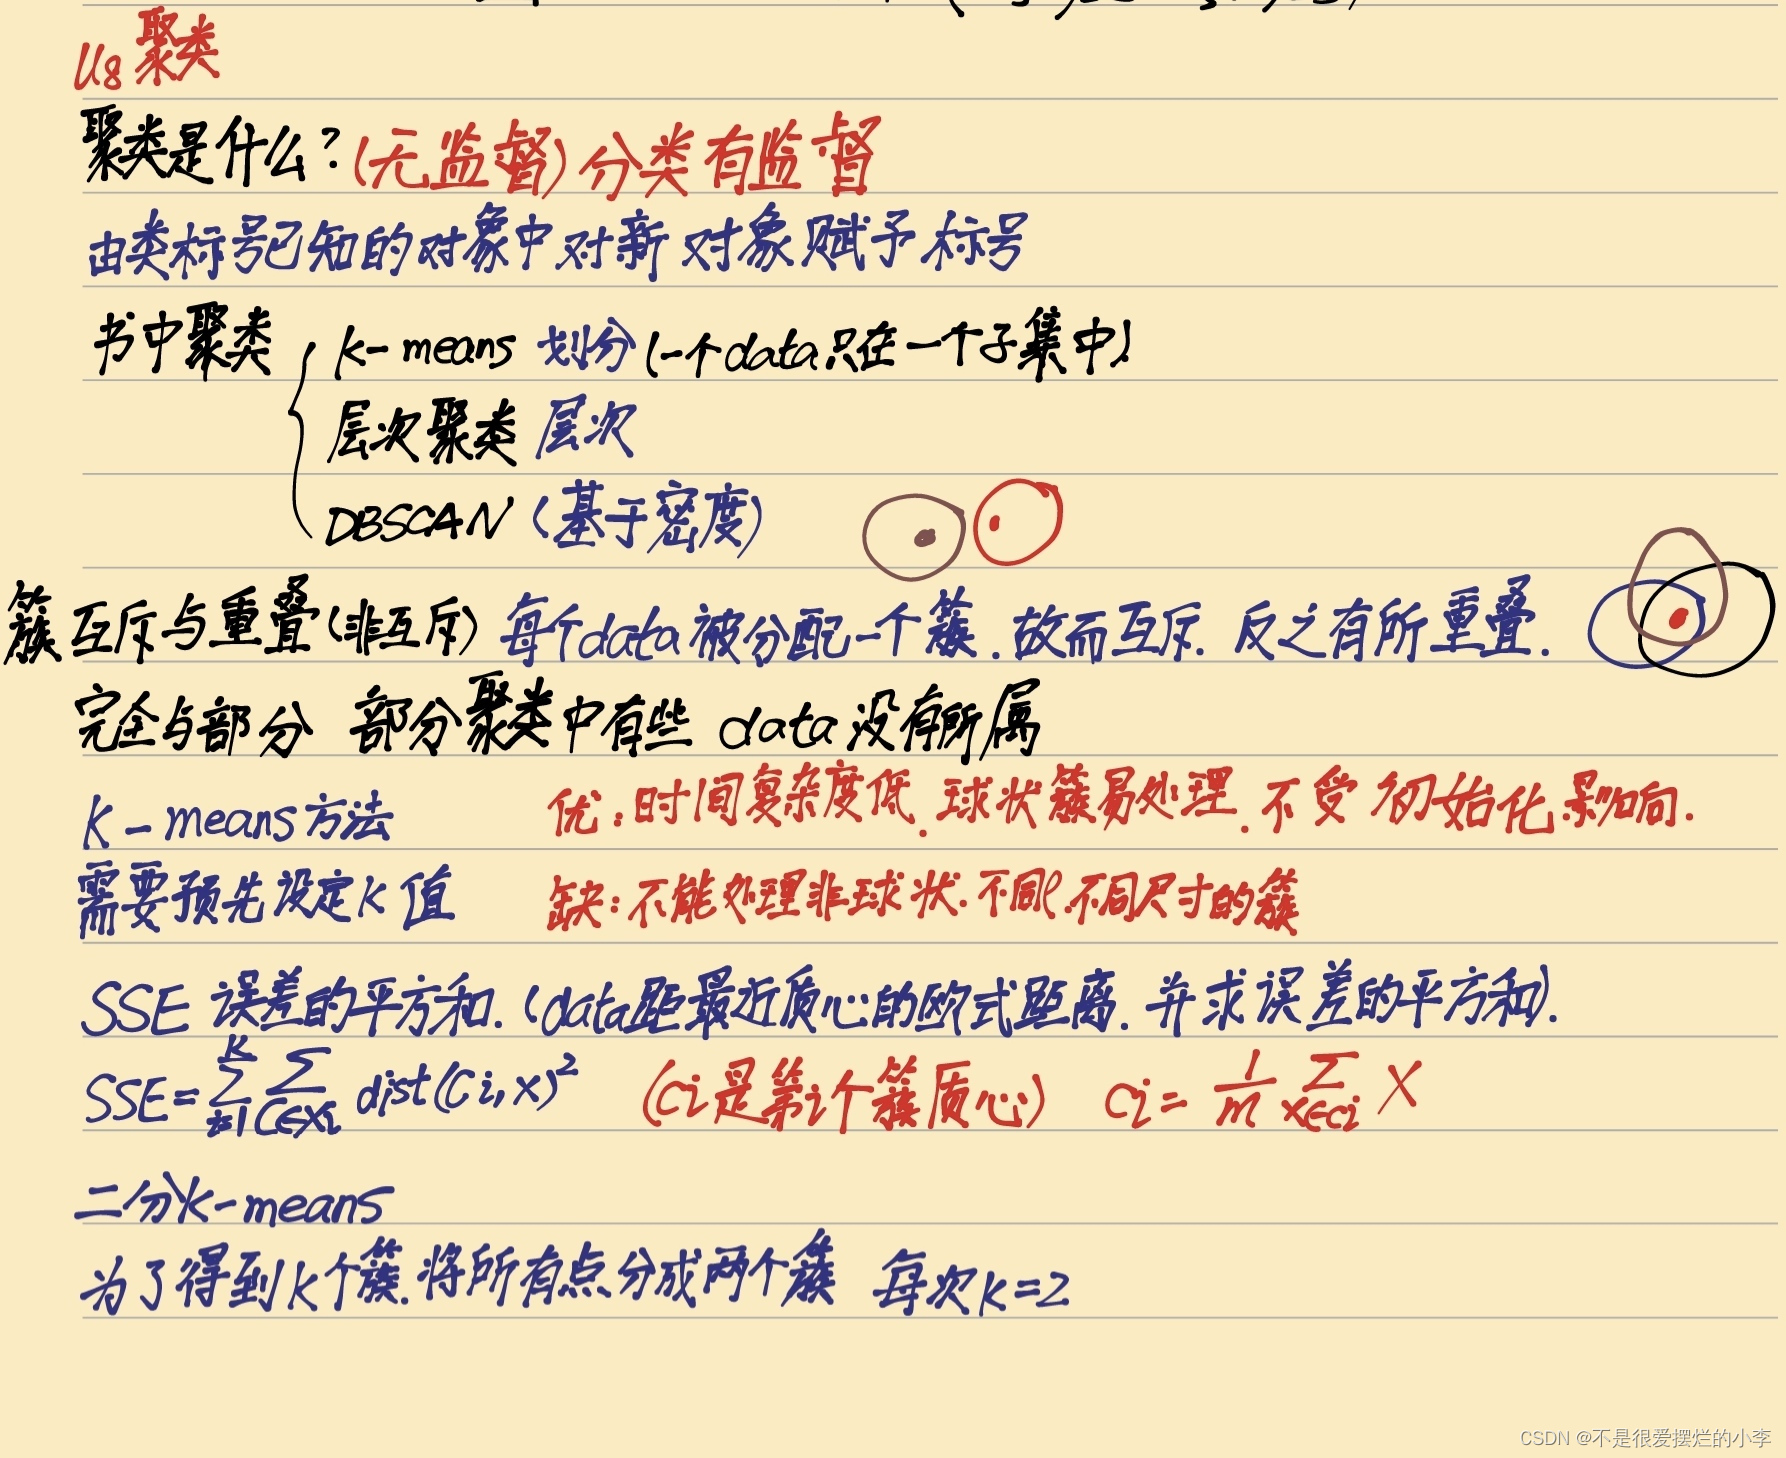 U8 聚类
聚类是什么？(无监督) 分类有监督
由类标号已知的对象中对新对象赋予标号
书中聚类 { k-means 划分 (一个data只在一个子集中)
层次聚类 层次
DBSCAN (基于密度)
簇 互斥与重叠(非互斥) 每个data被分配一个簇.故而互斥.反之有所重叠.
完全与部分 部分聚类中有些 data 没有所属
K-means方法 优:时间复杂度低.球状簇易处理.不受初始化影响.
需要预先设定k值 缺:不能处理非球状.不同ρ.不同尺寸的簇
SSE 误差的平方和.(data距最近质心的欧式距离.并求误差的平方和).
SSE=∑_{i=1}^{K}∑_{C∈Xi} dist(Ci,x)² (Ci是第i个簇质心) Ci= 1/m ∑_{x∈ci} X
二分k-means
为了得到k个簇.将所有点分成两个簇 每次k=2
CSDN @不是很爱摆烂的小李